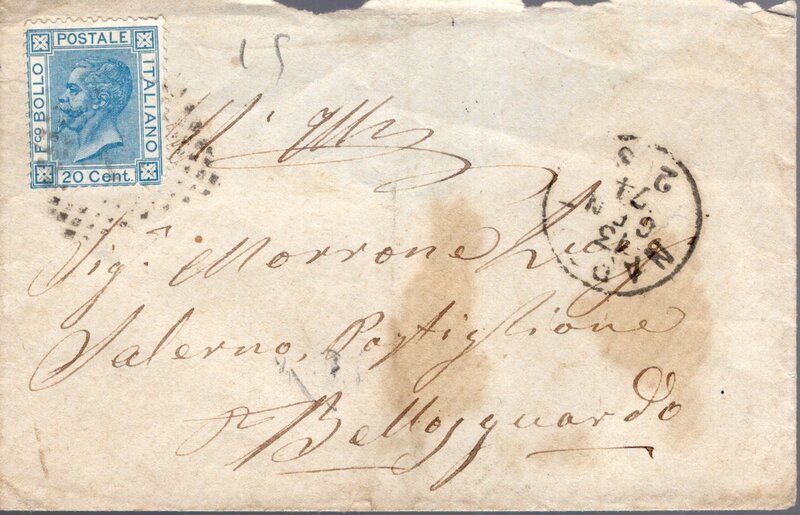 POSTALE
Fco BOLLO
ITALIANO
20 Cent.
15
All' Illmo
Sigr. Morrone Luigi
Salerno, Postiglione
Bellosguardo